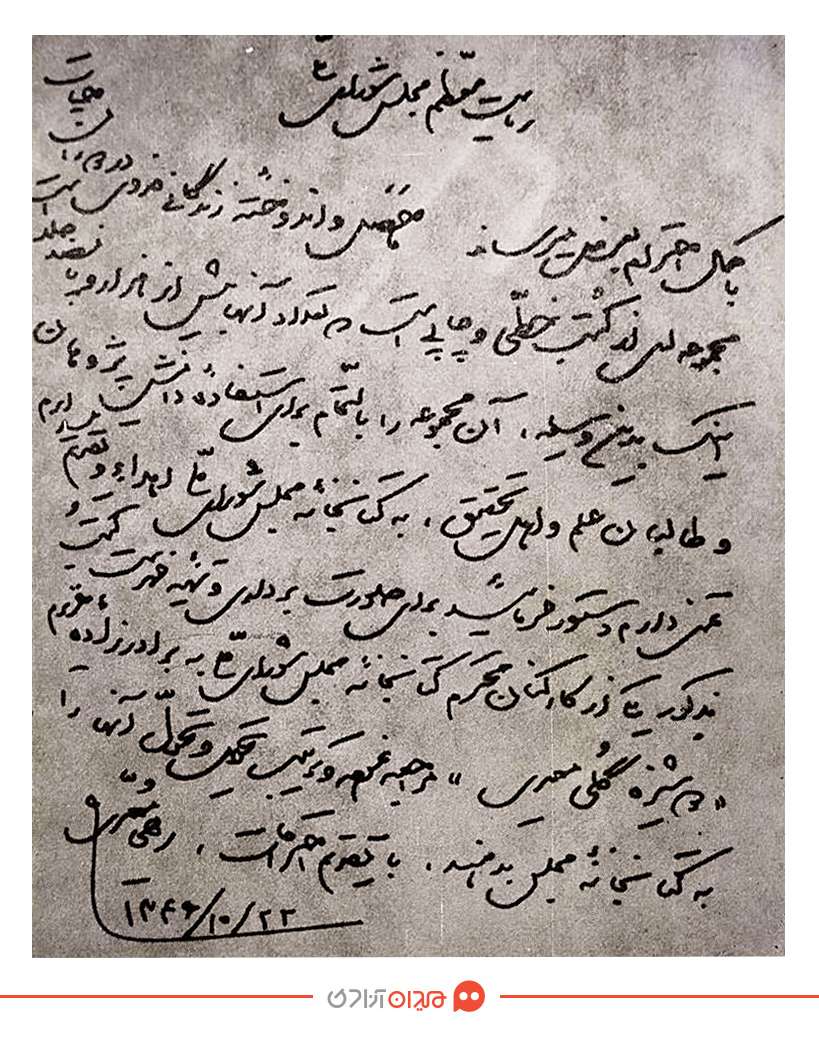 ریاست معظم مجلس شورای ملی
با کمال احترام بعرض میرساند. ماحصل و اندوخته زندگانی در دوران حیات
مجموعه‌ای از کتب خطی و چاپی است که تعداد آنها بیش از هزار و پانصد جلد است
اینک بدین وسیله، آن مجموعه را بالتمام برای استفاده دانش پژوهان
و طالبان علم و اهل تحقیق، به کتابخانهٔ مجلس شورای ملی اهداء و تقدیم میدارم
تمنی دارم دستور فرمائید برای صورت برداری و تهیه فهرست کتب
مذکور یکی از کارکنان محترم کتابخانهٔ مجلس شورای ملی به برادرزاده عزیزم
«دوشیزه گلی معیری» مراجعه نموده و ترتیب تحویل و تحول آنها را
به کتابخانهٔ مجلس بدهند. با تقدیم احترامات، رهی معیری
۱۳۴۶/۱۰/۲۲
میدان آزادی